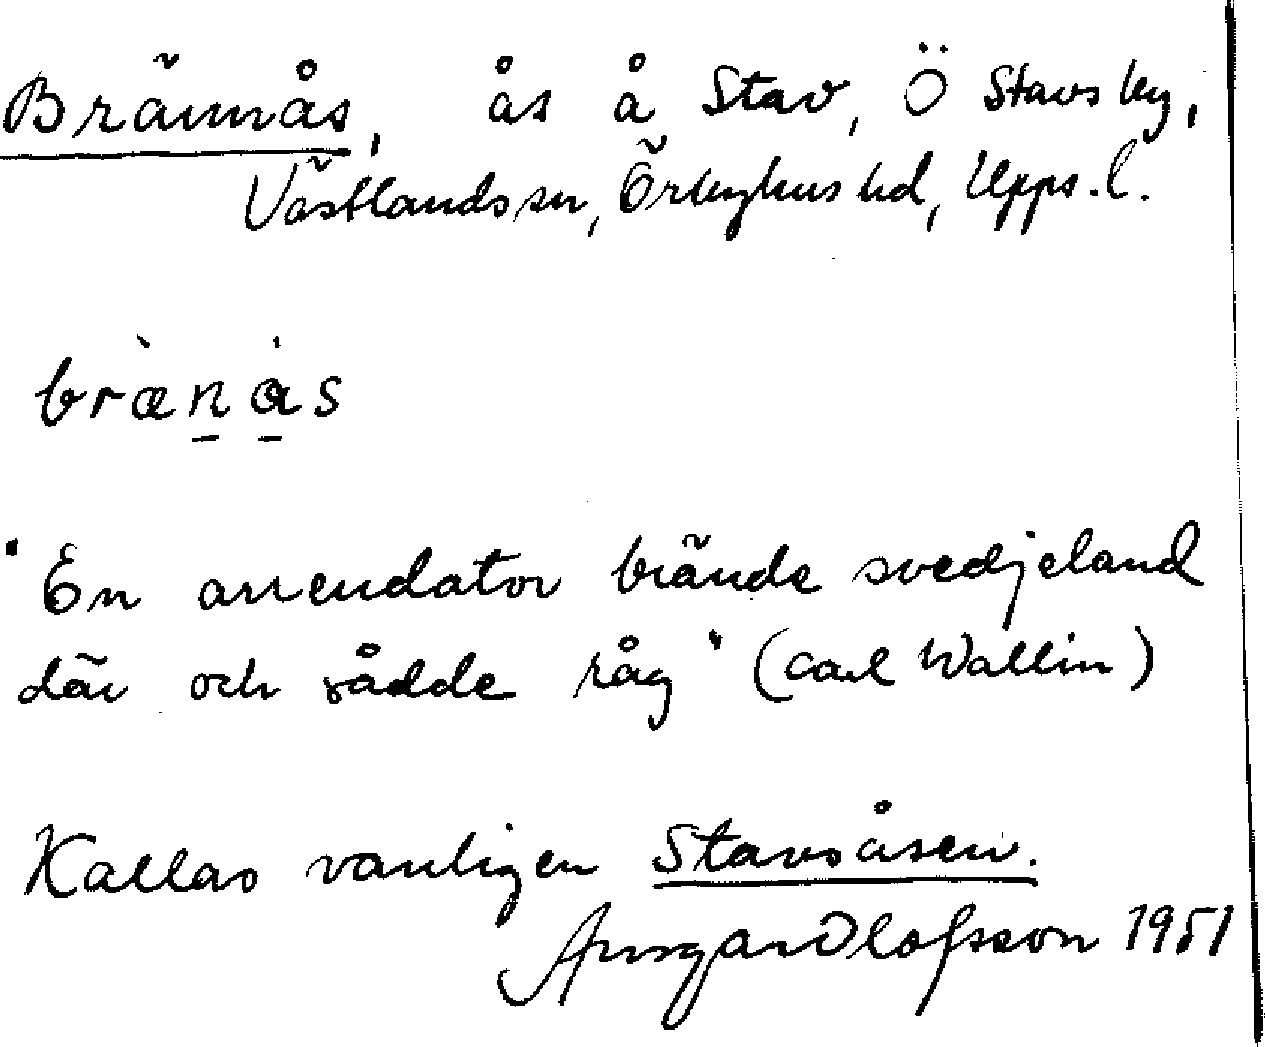 Brännås, ås å Stav, Ö Stavsby,
Västlands sn, Örbyhus hd, Upps. l.
bræ̀nås
"En arrendator brände svedjeland
där och sådde råg" (Carl Wallin)
Kallas vanligen Stavsåsen.
Ansgar Olofsson 1951